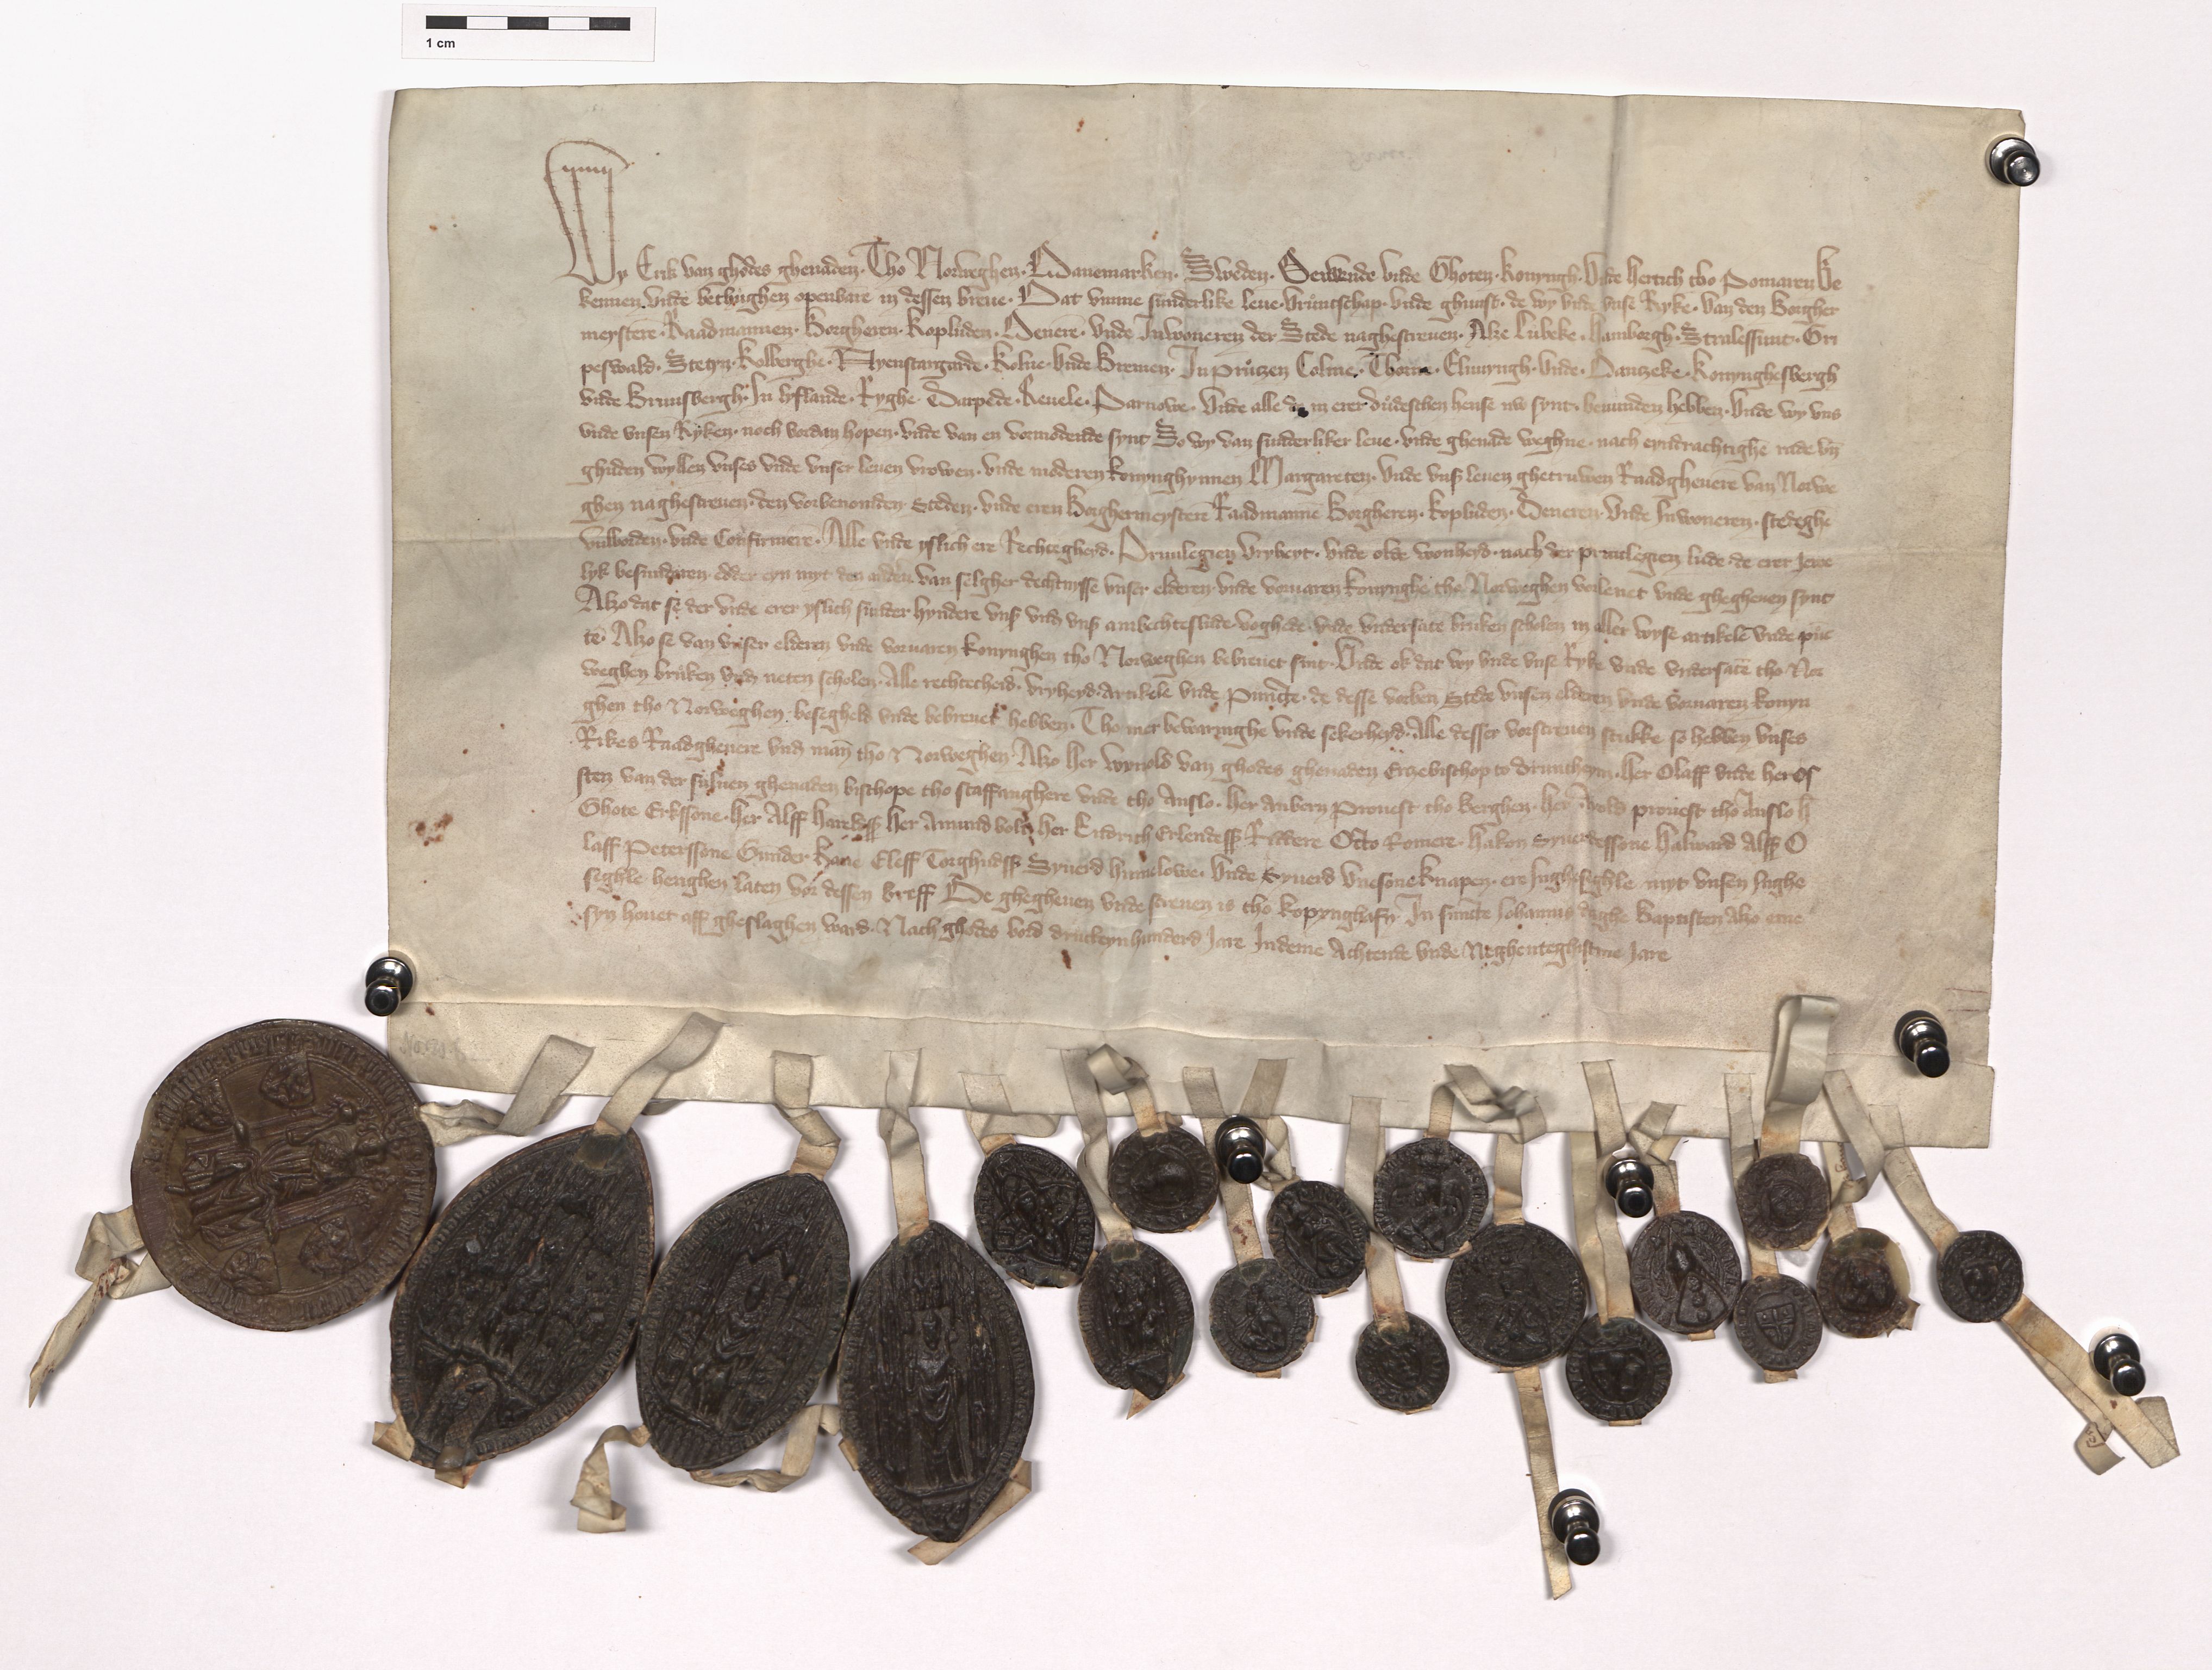 1 cm
Wy Erik van ghodes ghenaden. Tho Norweghen. Danemarken. Sweden. Sclavende vnde Ghoten. konyngh. Vnde hertich tho Pomaren Be
kennen vnde bethughen openbare in dessen breue. Dat vmme sunderlike leue. vruntschap. vnde ghunst. de wy vnde vnse Ryke. van den Borgher
meystere. Raadmannen. Borgheren. kopluden. Denere. vnde Inwoneren der Stede naghescreuen. Alze Lubeke. Hamborgh. Stralessunt. Gri
peswald. Stetyn. Kolberghe. Nyenstargarde. Kolne. vnde Bremen. In prutzen Colme. Thorun. Elmyngh. vnde. Dantzeke. konynghesbergh
vnde Brunsbergh. In lyflande. Ryghe. Darpede. Reuele. Parnowe. vnde alle de in erer dudeschen hense nw synt. beuunden hebben. vnde wy vns
vnde vnsen Ryken. noch vordan hopen. vnde van en vormodende synt So wy van sunderliker leue. vnde ghenade weghne. nach eyndrachtighē rade vn̄
ghuden wyllen vnses vnde vnser leuen vrowen. vnde moderen konynghynnen Margareten. vnde vnsß leuen ghetruwen Raadgheuere van Norwe
ghen naghescreuen. den vorbenomden. Steden. vnde eren Borghermeystere Raadmanne Borgheren. kopluden. Deneren. vnde Inwoneren. stedeghe
vulborden. vnde Confirmere. Alle vnde yslich ere Rechtegheyd. Priuilegien vryheyt. vnde olde wonheyd. nach der priuilegien lude. de erer Jewe
lyk besunderen. edder eyn myt den anderē. van selgher dechtnisse vnser elderen. vnde voruaren konynghe tho Norweghen vorlenet vnde ghegheuen synt
Alzo dat se der vnde erer yslich sunder hyndere vnsß vnd vnsß ambechteslude. voghede. vnde vndersate bruken scholen in aller wyse artikelē vnde pūc
te. Alzo se van vnser elderen vnde voruaren konynghen tho Norweghen bebreuet sint. Vnde ok dat wy vnde vnse Ryke vnde vndersatē tho Nor
weghen bruken vnd neten scholen. Alle rechtecheid. vryheyd. Artikele vnde puncte. de desse vorben Stede vnsen elderen vnde voruaren konyn
ghen tho Norweghen. besegheld vnde bebreuet hebben. Tho mer bewaringhe vnde sekerheyd. Alle desser vorscreuen stukke so hebben vnses
Rikes Raadgheuere vnd man tho Norweghen. Alzo Her Wynold van ghodes ghenaden Erzebischop to druntheym. her Olaff vnde her Os
sten van der suluen ghenaden bischope tho staffanghere vnde tho Anslo. her Anbern Prouest tho Berghen. her Arold prouest tho Anslo h̄
Ghote Erkssone. her Alff Hareldsß her Amund bolt her Endrich Erlendessß Riddere Otto Romere. Hakon Syuerdessone Halward Alfsß O
laff Peterssone Gunder kane Eleff Torghudsß Syuerd humelowe. vnde Syuerd vnesone knapen. ere Inghesighle myt vnsen Inghe
seghle henghen laten vor dessen breff De ghegheuen vnde screuen is tho kopynghafn In suncte Johannis daghe Baptisten Alzo eme
syn houet aff gheslaghen ward. Nach ghodes bord drutteynhunderd Jare Indeme Achtende vnde Neghenteghistme Jare